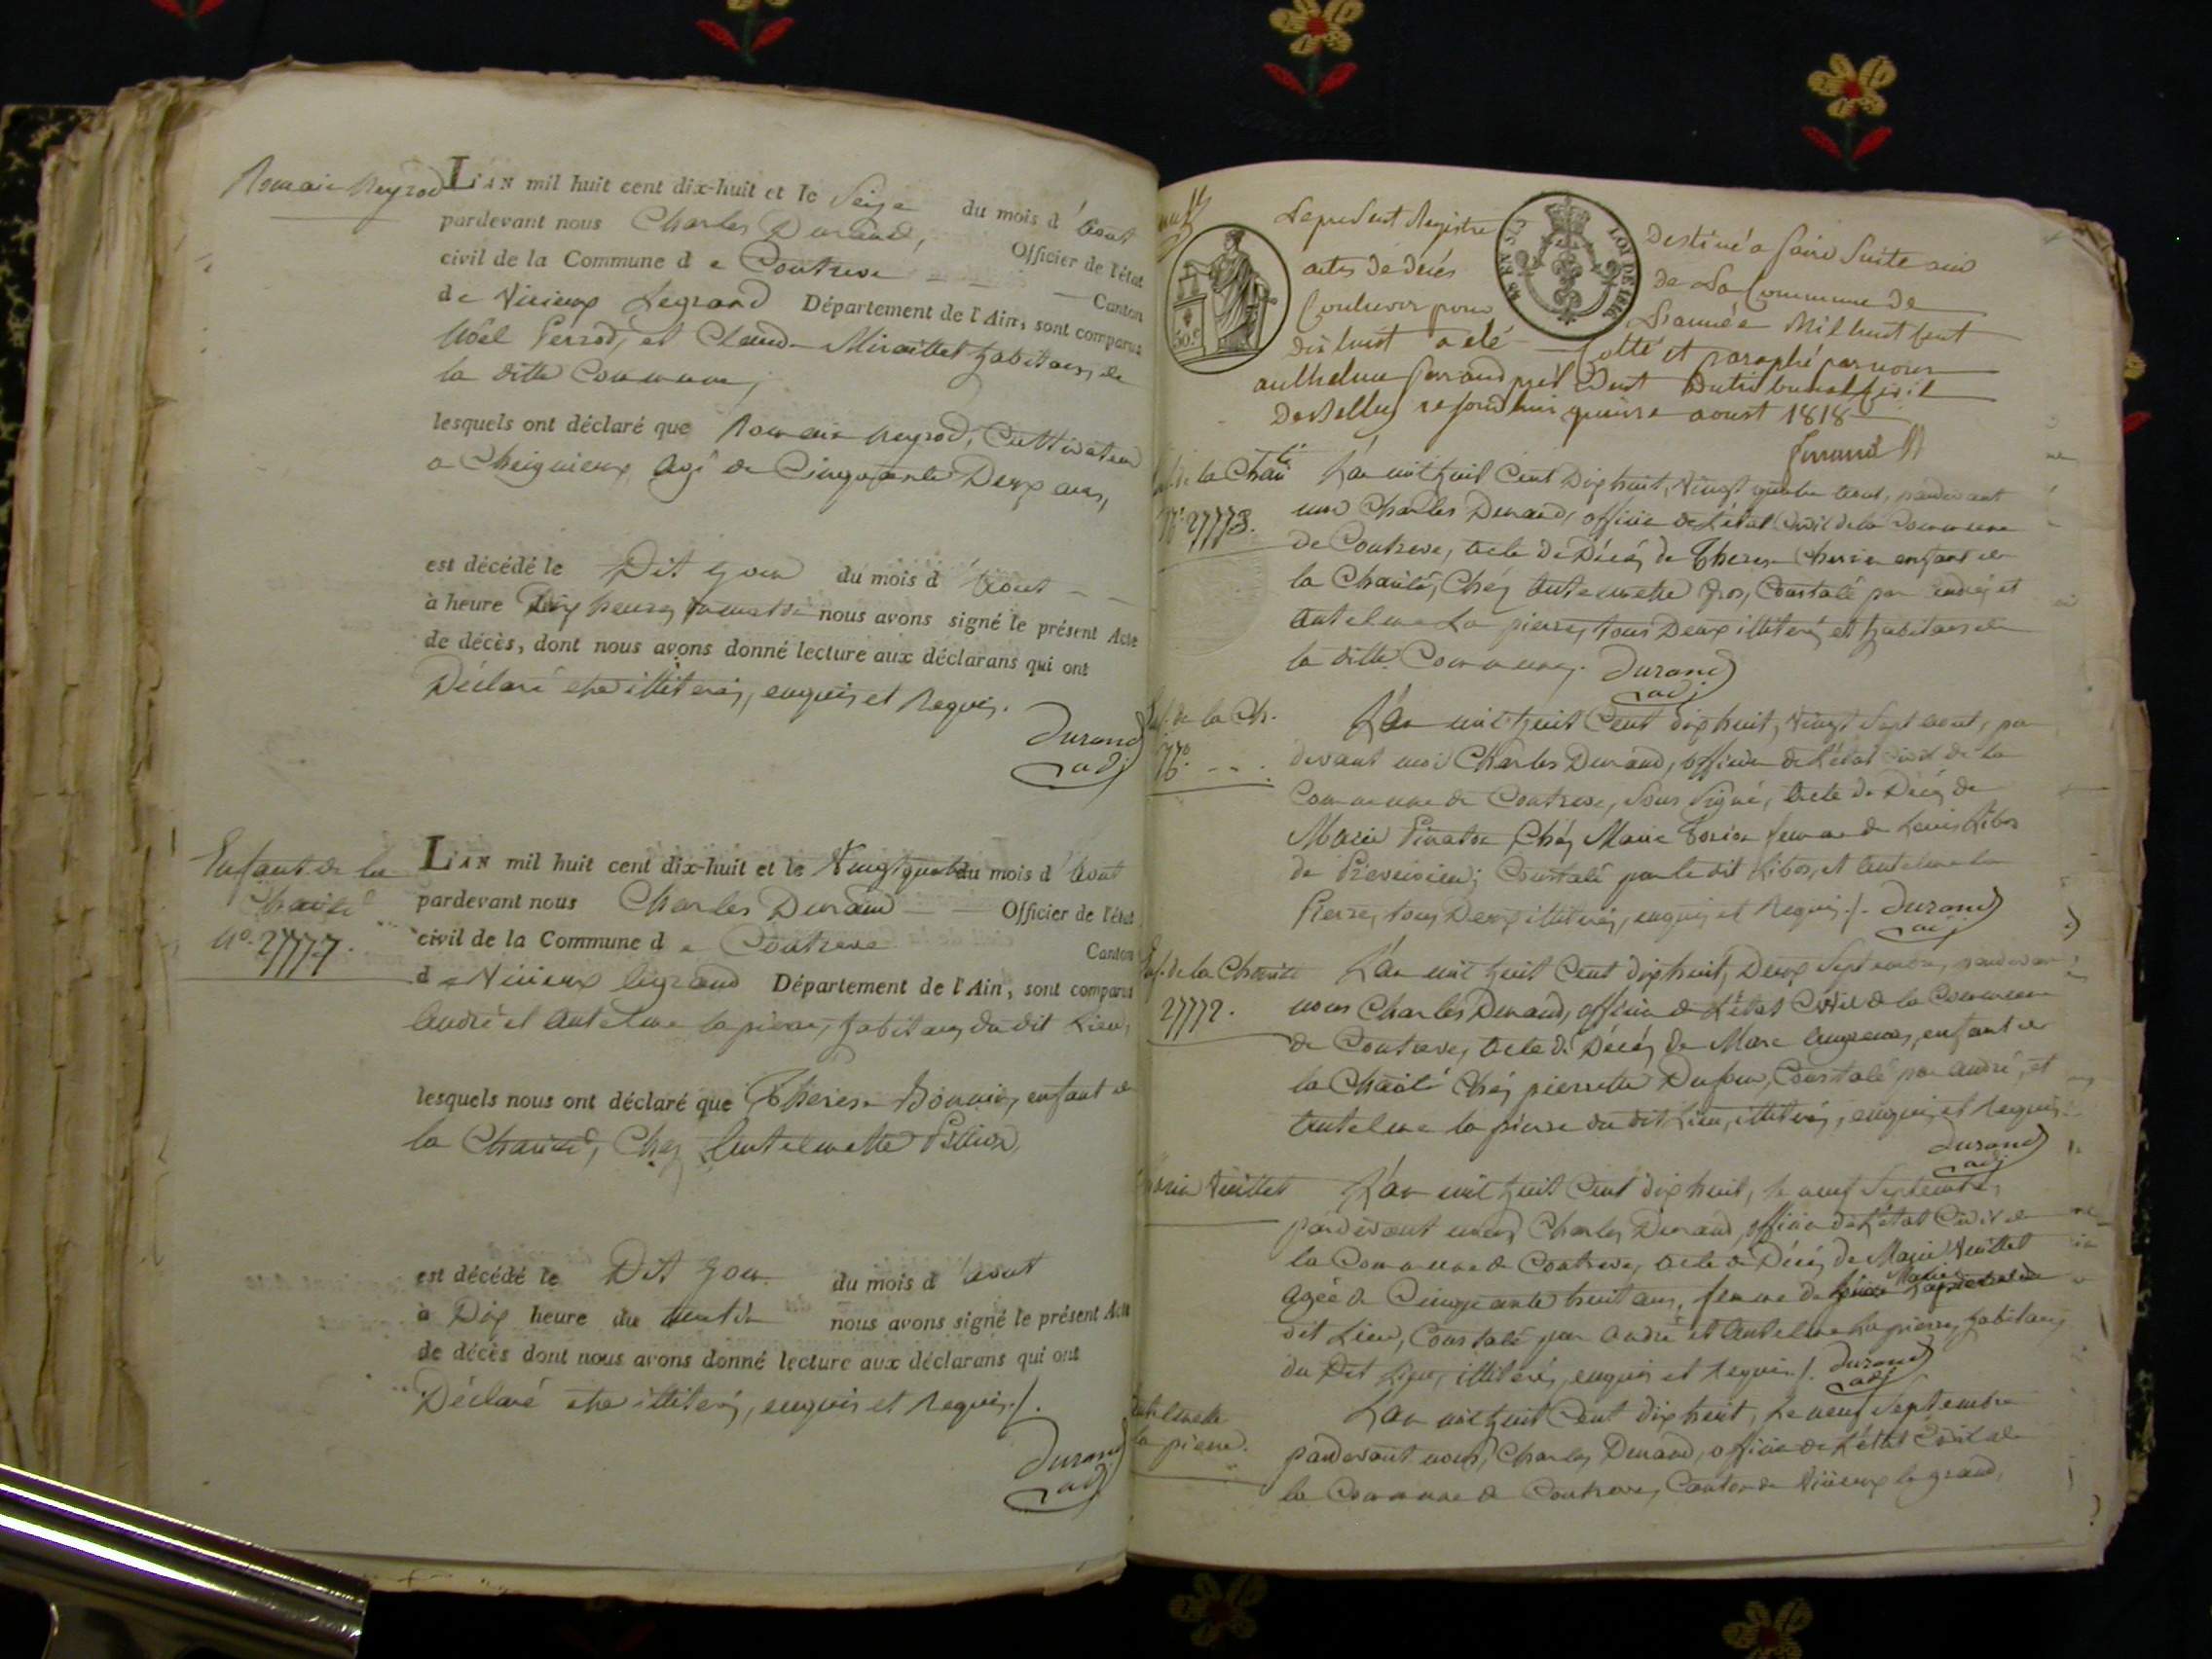 Romain Reyrod
L'AN mil huit cent dix-huit et le Seize du mois d'Aout
pardevant nous Charles Durand, Officier de l'état
civil de la Commune de Contrevoz Canton
de Virieux Legrand Département de l'Ain, sont comparus
Noël Perrod, et Claude Miraillet habitans de
la ditte Commune,
lesquels ont déclaré que Romain Reyrod, Cultivateur
a Cheignieux, agé de Cinquante Deux ans,
est décédé le Dit Jour du mois d'Aout
à heure Dix heures du matin nous avons signé le présent Acte
de décès, dont nous avons donné lecture aux déclarans qui ont
Déclaré etre illiterés, enquis et Requis.
Durand
adj
Enfant de la
Charité
N°. 27777.
L'AN mil huit cent dix-huit et le Vingt quatre du mois d'Aout
pardevant nous Charles Durand Officier de l'état
civil de la Commune de Contrevoz Canton
de Virieux legrand Département de l'Ain, sont comparus
André et Antelme la pierre, habitans du dit Lieu,
lesquels nous ont déclaré que Therese Bonnin, enfant de
la Charité, Chez Antelmette
est décédé le Dit Jour du mois d'Aout
à Dix heure du matin nous avons signé le présent Acte
de décès dont nous avons donné lecture aux déclarans qui ont
Déclaré etre illiterés, enquis et Requis./.
Durand
adj
Le present Registre destiné a faire Suite aux
actes de décés de La Commune de
Contrevoz pour L'année Mil huit Cent
dix huit a eté Cotté et paraphé par nous
anthelme ferrand président Du tribunal Civil
De Belley ce jourd'hui quinze aoust 1818
ferrand
50.C
LOI DE 1816
Enf. de la Chari té
N°. 27773.
L'an mil huit Cent Dix huit, Vingt quatre Aout, pardevant
nous Charles Durand, officier de L'état Civil de la Commune
de Contrevoz, Acte de Décés de Therese enfant de
la Charité, Chéz Antelmette Gros, Constaté par andré et
Antelme La pierre, tous Deux illiterés et habitans de
la ditte Commune. Durand
adj
Enf. de la Ch.
N°. - - .
L'an mil huit Cent dix huit, Vingt Sept Aout, par
devant nous Charles Durand, officier de L'état Civil de la
Commune de Contrevoz, Sous Signé, Acte de Décés de
Marie Chéz Marie femme de Louis
de Constaté par le dit et Antelme La
Pierre, tous Deux illiterés, enquis et Requis./. Durand
adj
Enf. de la Charité
27772.
L'an mil huit Cent dix huit, Deux Septembre, pardevant
nous Charles Durand, officier de L'état Civil de la Commune
de Contrevoz, Acte de Décés de Marc enfant de
la Charité Chéz pierrette Dufour, Constaté par André, et
Antelme la pierre du dit Lieu, illiterés, enquis et Requis.
Durand
adj
Marie Vuillet
L'an mil huit Cent dix huit, le neuf Septembre,
pardevant nous Charles Durand, officier de L'état Civil de
la Commune de Contrevoz, Acte de Décés de Marie Vuillet
agée de Cinquante huit ans, femme de
dit Lieu, Constaté par André et Antelme La pierre, habitans
du Dit Lieu, illiterés, enquis et Requis./. Durand
adj
Antelmette
la pierre.
L'an mil huit Cent dix huit, le neuf Septembre
pardevant nous, Charles Durand, officier de L'état Civil de
la Commune de Contrevoz, Canton de Virieux le grand,